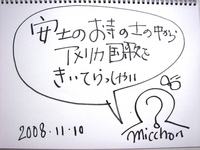 安土のお寺の土の中から
アメリカ国歌を
きいてらっしゃい
2008.11.10
micchon